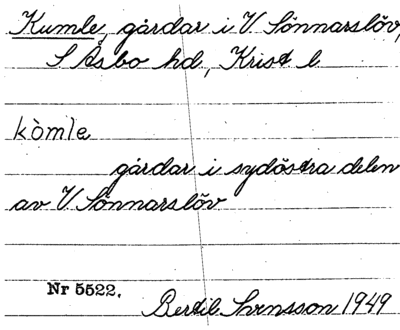 Kumle, gårdar i V. Sönnarslöv,
S Åsbo hd, Krist l
kòmle
gårdar i sydöstra delen
av V Sönnarslöv
Nr 5522.
Bertil Svensson 1949